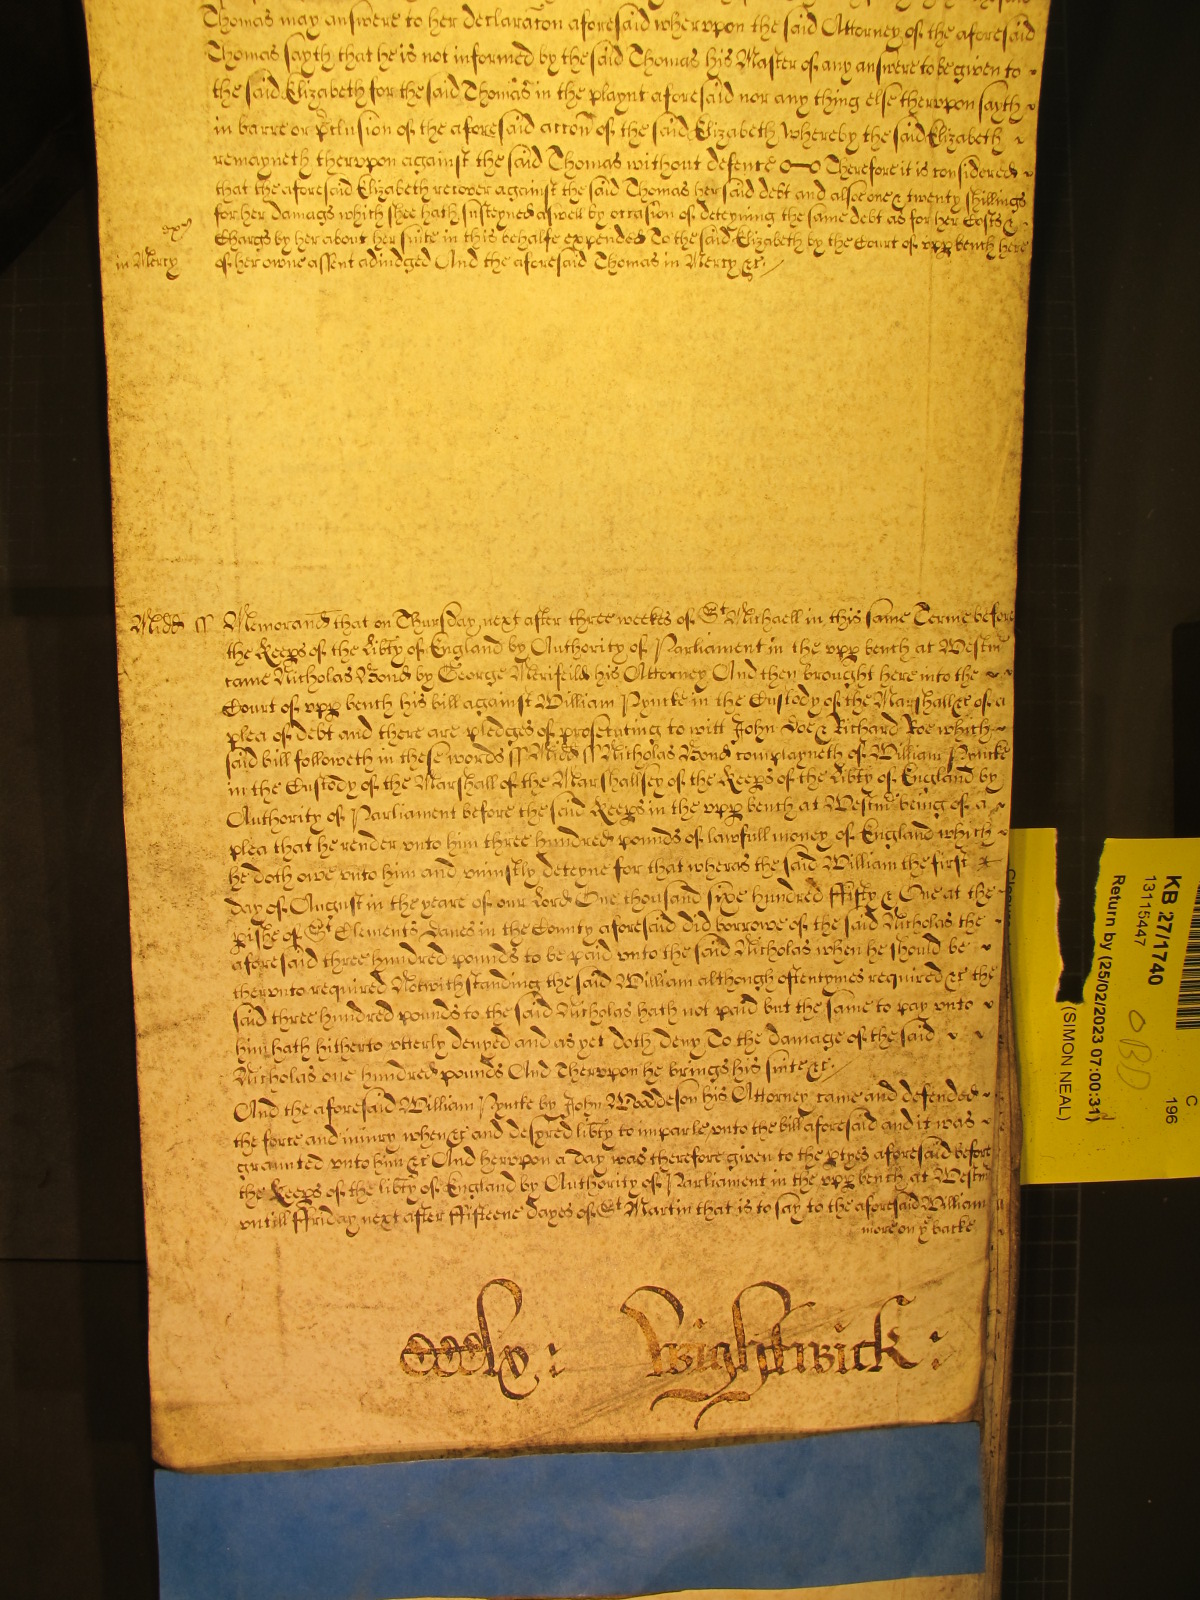 Thomas may answere to her declaracon aforesaid wherupon the said Attorney of the aforesaid
Thomas sayth that he is not informed by the said Thomas his Master of any answere to be given to
the said Elizabeth for the said Thomas in the playnt aforesaid nor any thing else therupon sayth
in barre or pclusion of the aforesaid accon of the said Elizabeth whereby the said Elizabeth
remayneth therupon against the said Thomas without defence Therefore it is considered
that the aforesaid Elizabeth recover against the said Thomas her said debt and alsoe one & twenty shillings
for her damags which shee hath susteyned aswell by occasion of deteyning the same debt as for her Costs &
Chargs by her about her suite in this behalfe expended To the said Elizabeth by the Court of upp bench here
in Mercy of her owne assent adiudged And the aforesaid Thomas in Mercy &c.
Midd ss Memorand that on Thursday next after three weekes of St Michaell in this same Terme before
the Keeps of the Libty of England by Authority of Parliament in the upp bench at Westm
came Nicholas Bond by George Merifeild his Attorney And then brought here into the
Court of upp bench his bill against William Pyncke in the Custody of the Marshall &c of a
plea of debt and there are pledges of prosecuting to witt John Doe & Richard Roe which
said bill followeth in these words ss Midd ss Nicholas Bond complayneth of William Pyncke
in the Custody of the Marshall of the Marshallsey of the Keeps of the Libty of England by
Authority of Parliament before the said Keeps in the upp bench at Westm being of a
plea that he render unto him three hundred pounds of lawfull money of England which
he doth owe unto him and uniustly deteyne for that wheras the said William the first
day of August in the yeare of our Lord One thousand sixe hundred ffifty & One at the
pishe of St Clements Danes in the County aforesaid did borrowe of the said Nicholas the
aforesaid three hundred pounds to be paid unto the said Nicholas when he should be
therunto required Notwithstanding the said William although oftentymes required &c the
said three hundred pounds to the said Nicholas hath not paid but the same to pay unto
him hath hitherto utterly denyed and as yet doth deny To the damage of the said
Nicholas one hundred pounds And Therupon he brings his suite &c.
And the aforesaid William Pyncke by John Woodeson his Attorney came and defended
the force and iniury when &c and desyred libty to imparle unto the bill aforesaid and it was
graunted unto him &c And herupon a day was therefore given to the ptyes aforesaid before
the Keeps of the libty of England by Authority of Parliament in the upp bench at Westm
untill ffriday next after ffifteene dayes of St Martin that is to say to the aforesaid William
more on ye backe
Wightwick
KB 27/1740
13115447
Return by (25/02/2023 07:00:31)
(SIMON NEAL)
C
196